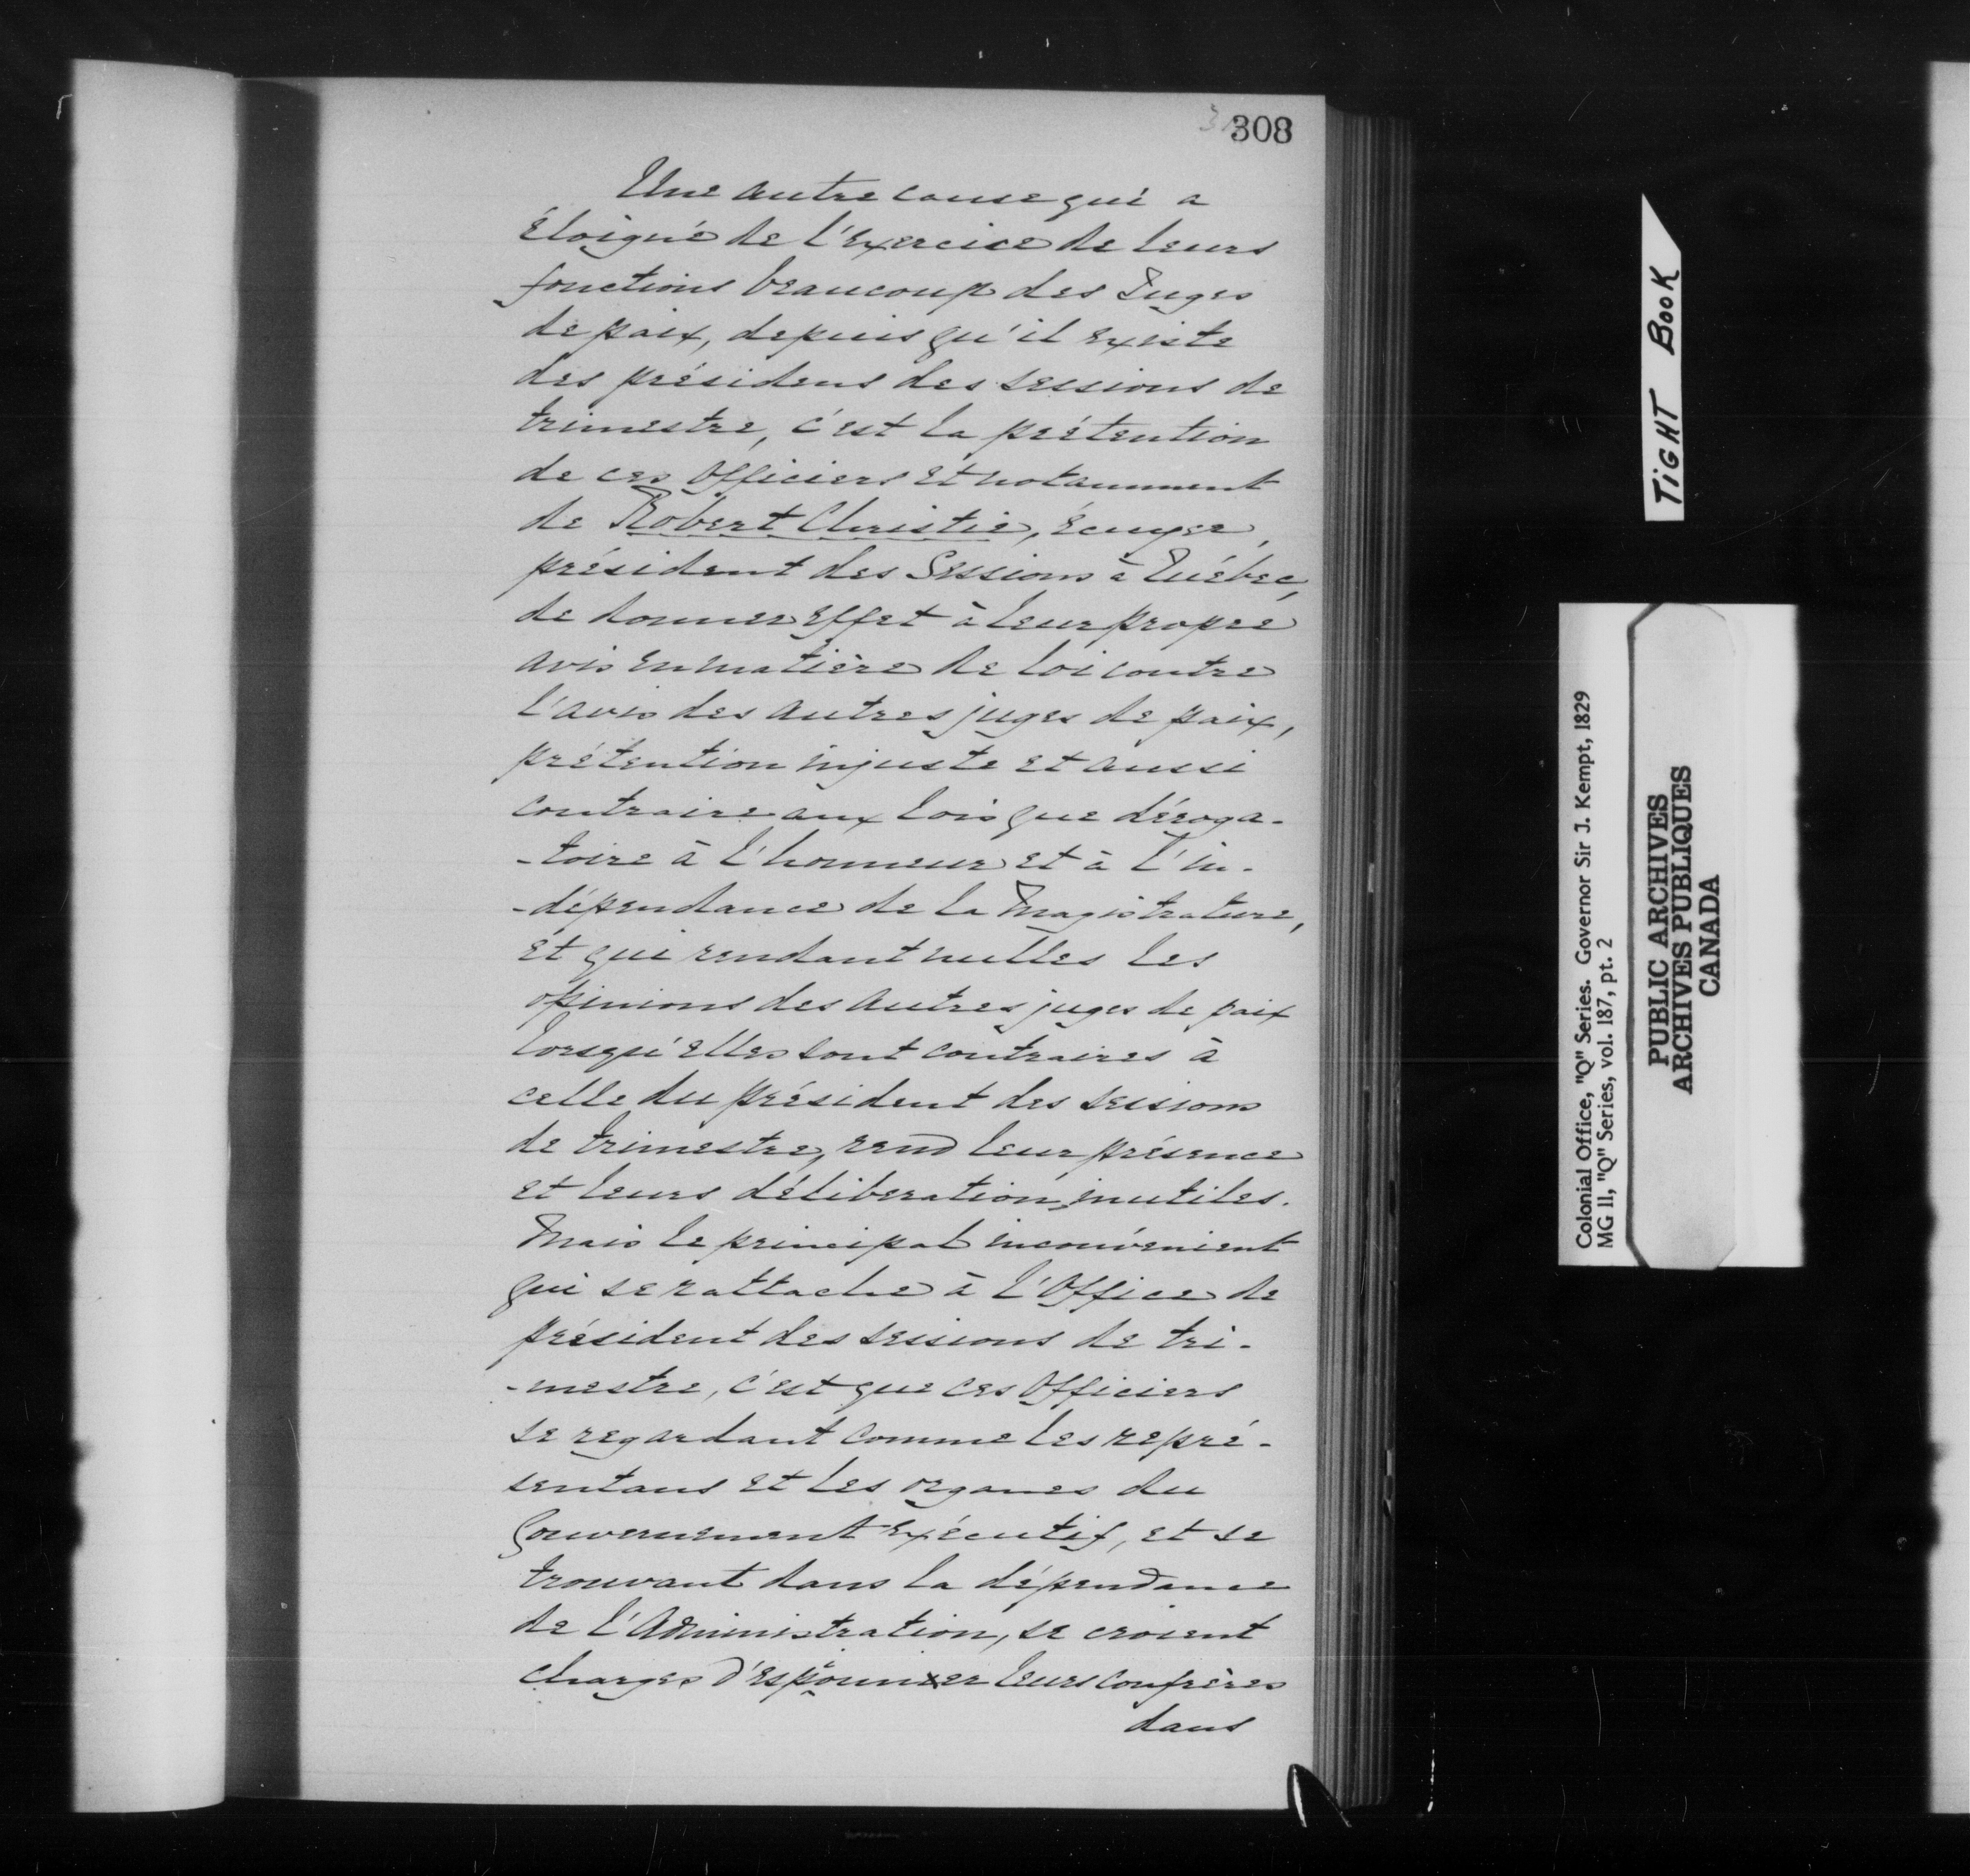 308
Une autre cause qui a
éloigné de l'Exercice de leurs
fonctions beaucoup des Juges
de paix, depuis qu'il existe
des présidens des sessions de
trimestre, c'est la prétention
de ces Officiers et notamment
de Robert Christie, écuyer,
président des Sessions à Québec,
de donner effet à leur propre
avis en matière de loi contre
l'avis des autres juges de paix,
prétention injuste et aussi
contraire aux lois que déroga-
-toire à l'honneur et à l'in-
-dépendance de la Magistrature,
et qui rendant nulles les
opinions des autres juges de paix
lorsqu'elles sont contraires à
celle du président des sessions
de trimestre, rend leur présence
et leurs déliberations inutiles.
Mais le principal inconvénient
qui se rattache à l'Office de
président des sessions de tri-
-mestre, c'est que ces Officiers
se regardant comme les repré-
sentans et les organes du
Gouvernement exécutif, et se
trouvant dans la dépendance
de l'Administration, se croient
charges leurs confrères
dans
TiGHT BOOK
Colonial Office, "Q" Series. Governor Sir J. Kempt, 1829
MG 11, "Q" Series, vol. 187, pt. 2
PUBLIC ARCHIVES
ARCHIVES PUBLIQUES
CANADA